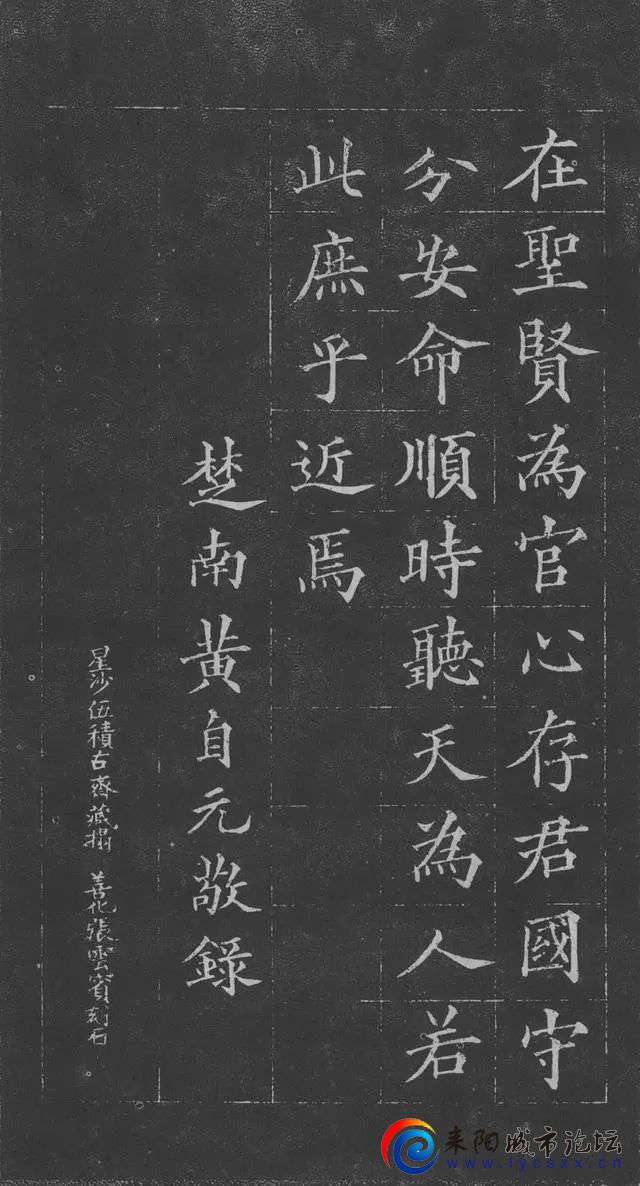 在聖賢為官心存君國守
分安命順時聽天為人若
此庶乎近焉
楚南黄自元敬錄
星沙伍積古齋藏搨 善化張雲賓刻石
耒阳城市论坛
www.lycsxx.cn